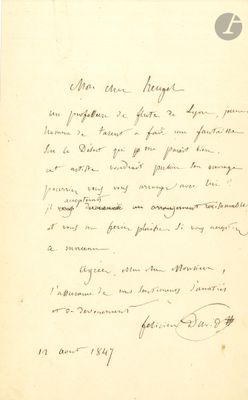 Mon cher Heugel
un professeur de flute de Lyon, jeune
homme de talent a fait une fantaisie
sur le Désert qui me parait bien.
cet artiste voudrait publier son ouvrage
pourriez vous vous arranger avec lui ?
il accepterait un arrangement raisonnable
et vous me feriez plaisir si vous
a
Agréez, Mon cher Monsieur,
l'assurance de mes sentimens d'amitié
et de dévouement
félicien David
12 aout 1847